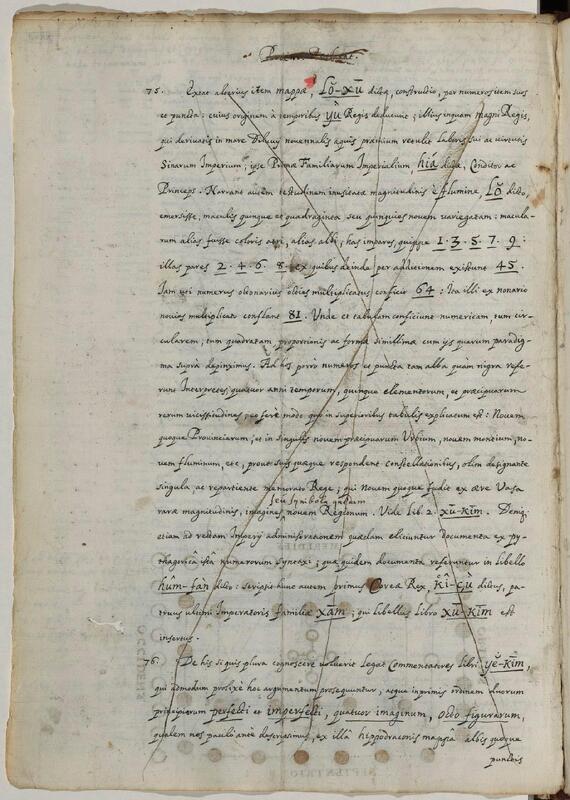 75. Extat alterius item mappæ, Lǒ-xū dictæ, constructio, per numeros item suos
et puncta: cuius originem à temporibus yù Regis deducunt; illius inquam magni Regis,
qui derivatis in mare Diluvij novennalis aquis præmium retulit laboris sui ac virtutis
Sinarum Imperium; ipse Primæ Familiarum Imperialium, hiá dictæ, Conditor ac
Princeps. Narrant autem testudinem inusitatæ magnitudinis è flumine, Lǒ dicto,
emersisse, maculis quinque et quadraginta seu punctis novem variegatam: macula-
rum alias fuisse coloris atri, alias albi; has impares, quinque 1. 3. 5. 7. 9:
illas pares 2. 4. 6. 8. ex quibus deinde per additionem existunt 45.
Iam uti numerus octonarius octies multiplicatus conficit 64: Ita illi ex nonario
novies multiplicato constant 81. Unde et tabulam conficiunt numericam, tum cir-
cularem, tum quadratam proportionis ac formæ simillimæ cum ijs quarum paradig-
ma suprà depinximus. Ad hos porrò numeros et puncta tam alba quàm nigra refe-
runt Interpretes quatuor anni temporum, quinque elementorum, et præcipuarum
rerum vicissitudines, eo ferè modo quo in superioribus tabulis explicatum est: Novem
quoque Provinciarum, et in singulis novem præcipuarum Urbium, novem montium, no-
vem fluminum, etc, prout suis quæque respondent constellationibus, olim designante
singula, ac repartiente memorato Rege; qui novem quoque fudit ex ære Vasa
seu Symbola quædam
raræ magnitudinis, imagines novem Regionum. Vide Lib. 2. xū-kim. Deniq;
etiam ad rectam Imperij administrationem quædam eliciuntur documenta ex py-
thagoricâ istâ numerorum syntaxi; quæ quidem documenta referuntur in libello
hûm-fán dicto: scripsit hunc autem primus Coreæ Rex, Kī-çù dictus, pa-
truus ultimi Imperatoris familiæ xām; qui libellus Libro xū-kīm est
insertus.
76. De his si quis plura cognoscere voluerit legat Commentatores Libri yě-kīm,
qui admodum prolixè hoc argumentum prosequuntur, atque inprimis ordinem duorum
principiorum perfecti et imperfecti, quatuor imaginum, octo figurarum,
qualem nos paulò ante descripsimus, ex illâ hippodraconis mappâ albis quoque
punctis